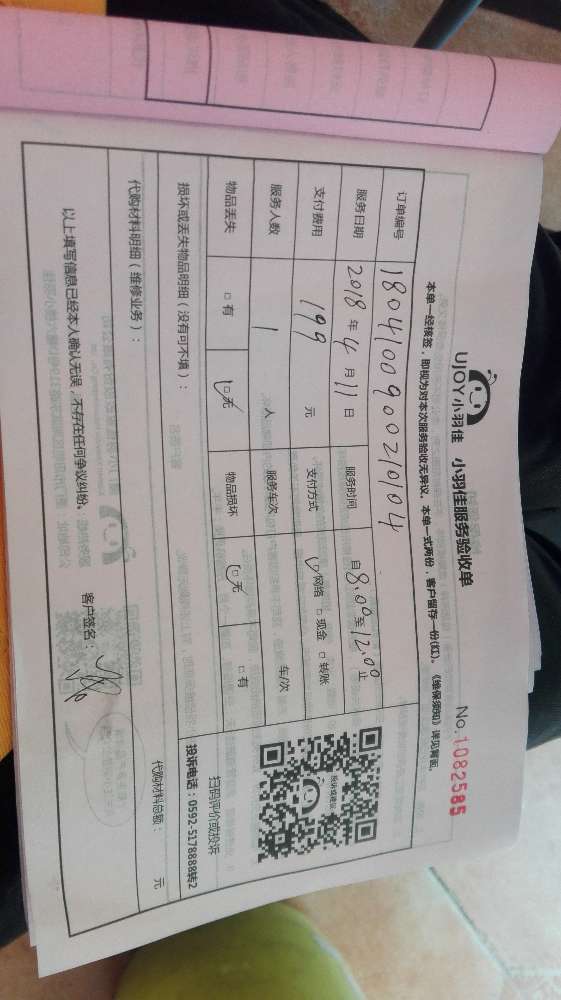 UJOY小羽佳 小羽佳服务验收单
No.1082585
本单一经核签，即视为对本次服务验收无异议。本单一式两份，客户留存一份(红)。《维保须知》详见背面。
订单编号 180410090210104
服务日期 2018年4月11日 服务时间 自8:00至12:00止
支付费用 199元 支付方式 ☑网络 □现金 □转账
服务人数 1人 服务车次 车/次
物品丢失 □有 ☑无 物品损坏 ☑无 □有
投诉或建议
扫码评价或投诉
投诉电话：0592-5178888转2
损坏或丢失物品明细（没有可不填）：
代购材料明细（维修业务）： 代购材料总额： 元
以上填写信息已经本人确认无误，不存在任何争议纠纷。 客户签名：